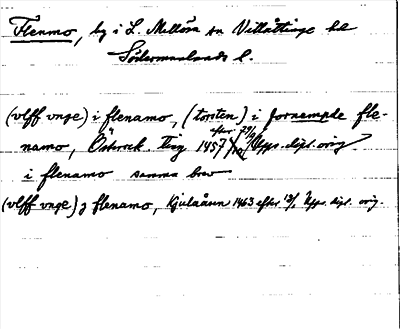 Flenmo, by i L. Mellösa sn Villåttinge hd
Södermanlands l.
(vlff vnge) i flenamo, (torsten) i fornempde fle-
namo, Österrek. ting 1457 efter 29/9 Upps. dipl. orig
i flenamo samma brev
(vlff vnge) j flenamo, Kjulaåsen 1463 efter 13/1 Upps. dipl. orig.